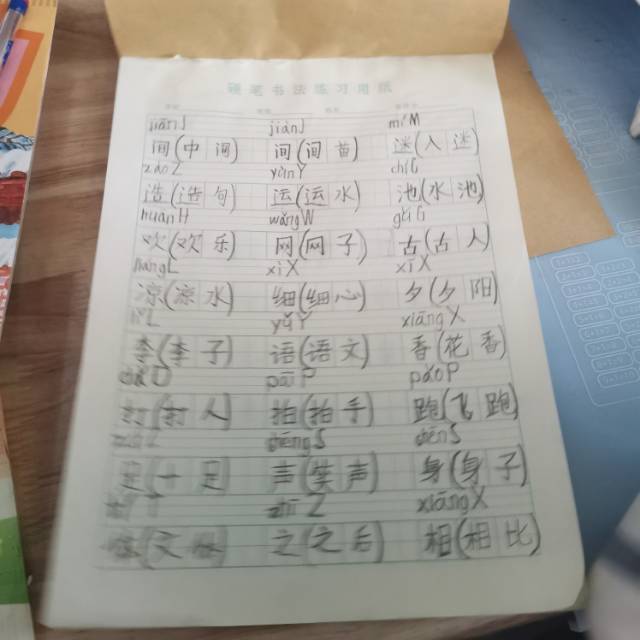 硬笔书法练习用纸
jiānJ jiànJ míM
间(中间) 间(间苗) 迷(入迷)
zàoZ yùnY chíC
造(造句) 运(运水) 池(水池)
huānH wǎngW gǔG
欢(欢乐) 网(网子) 古(古人)
liángL xìX xīX
凉(凉水) 细(细心) 夕(夕阳)
lǐL yǔY xiāngX
李(李子) 语(语文) 香(花香)
dǎD pāiP pǎoP
打(打人) 拍(拍手) 跑(飞跑)
shēngS shēnS
足(十足) 声(生声) 身(身子)
zhīZ xiāngX
之(之后) 相(相比)